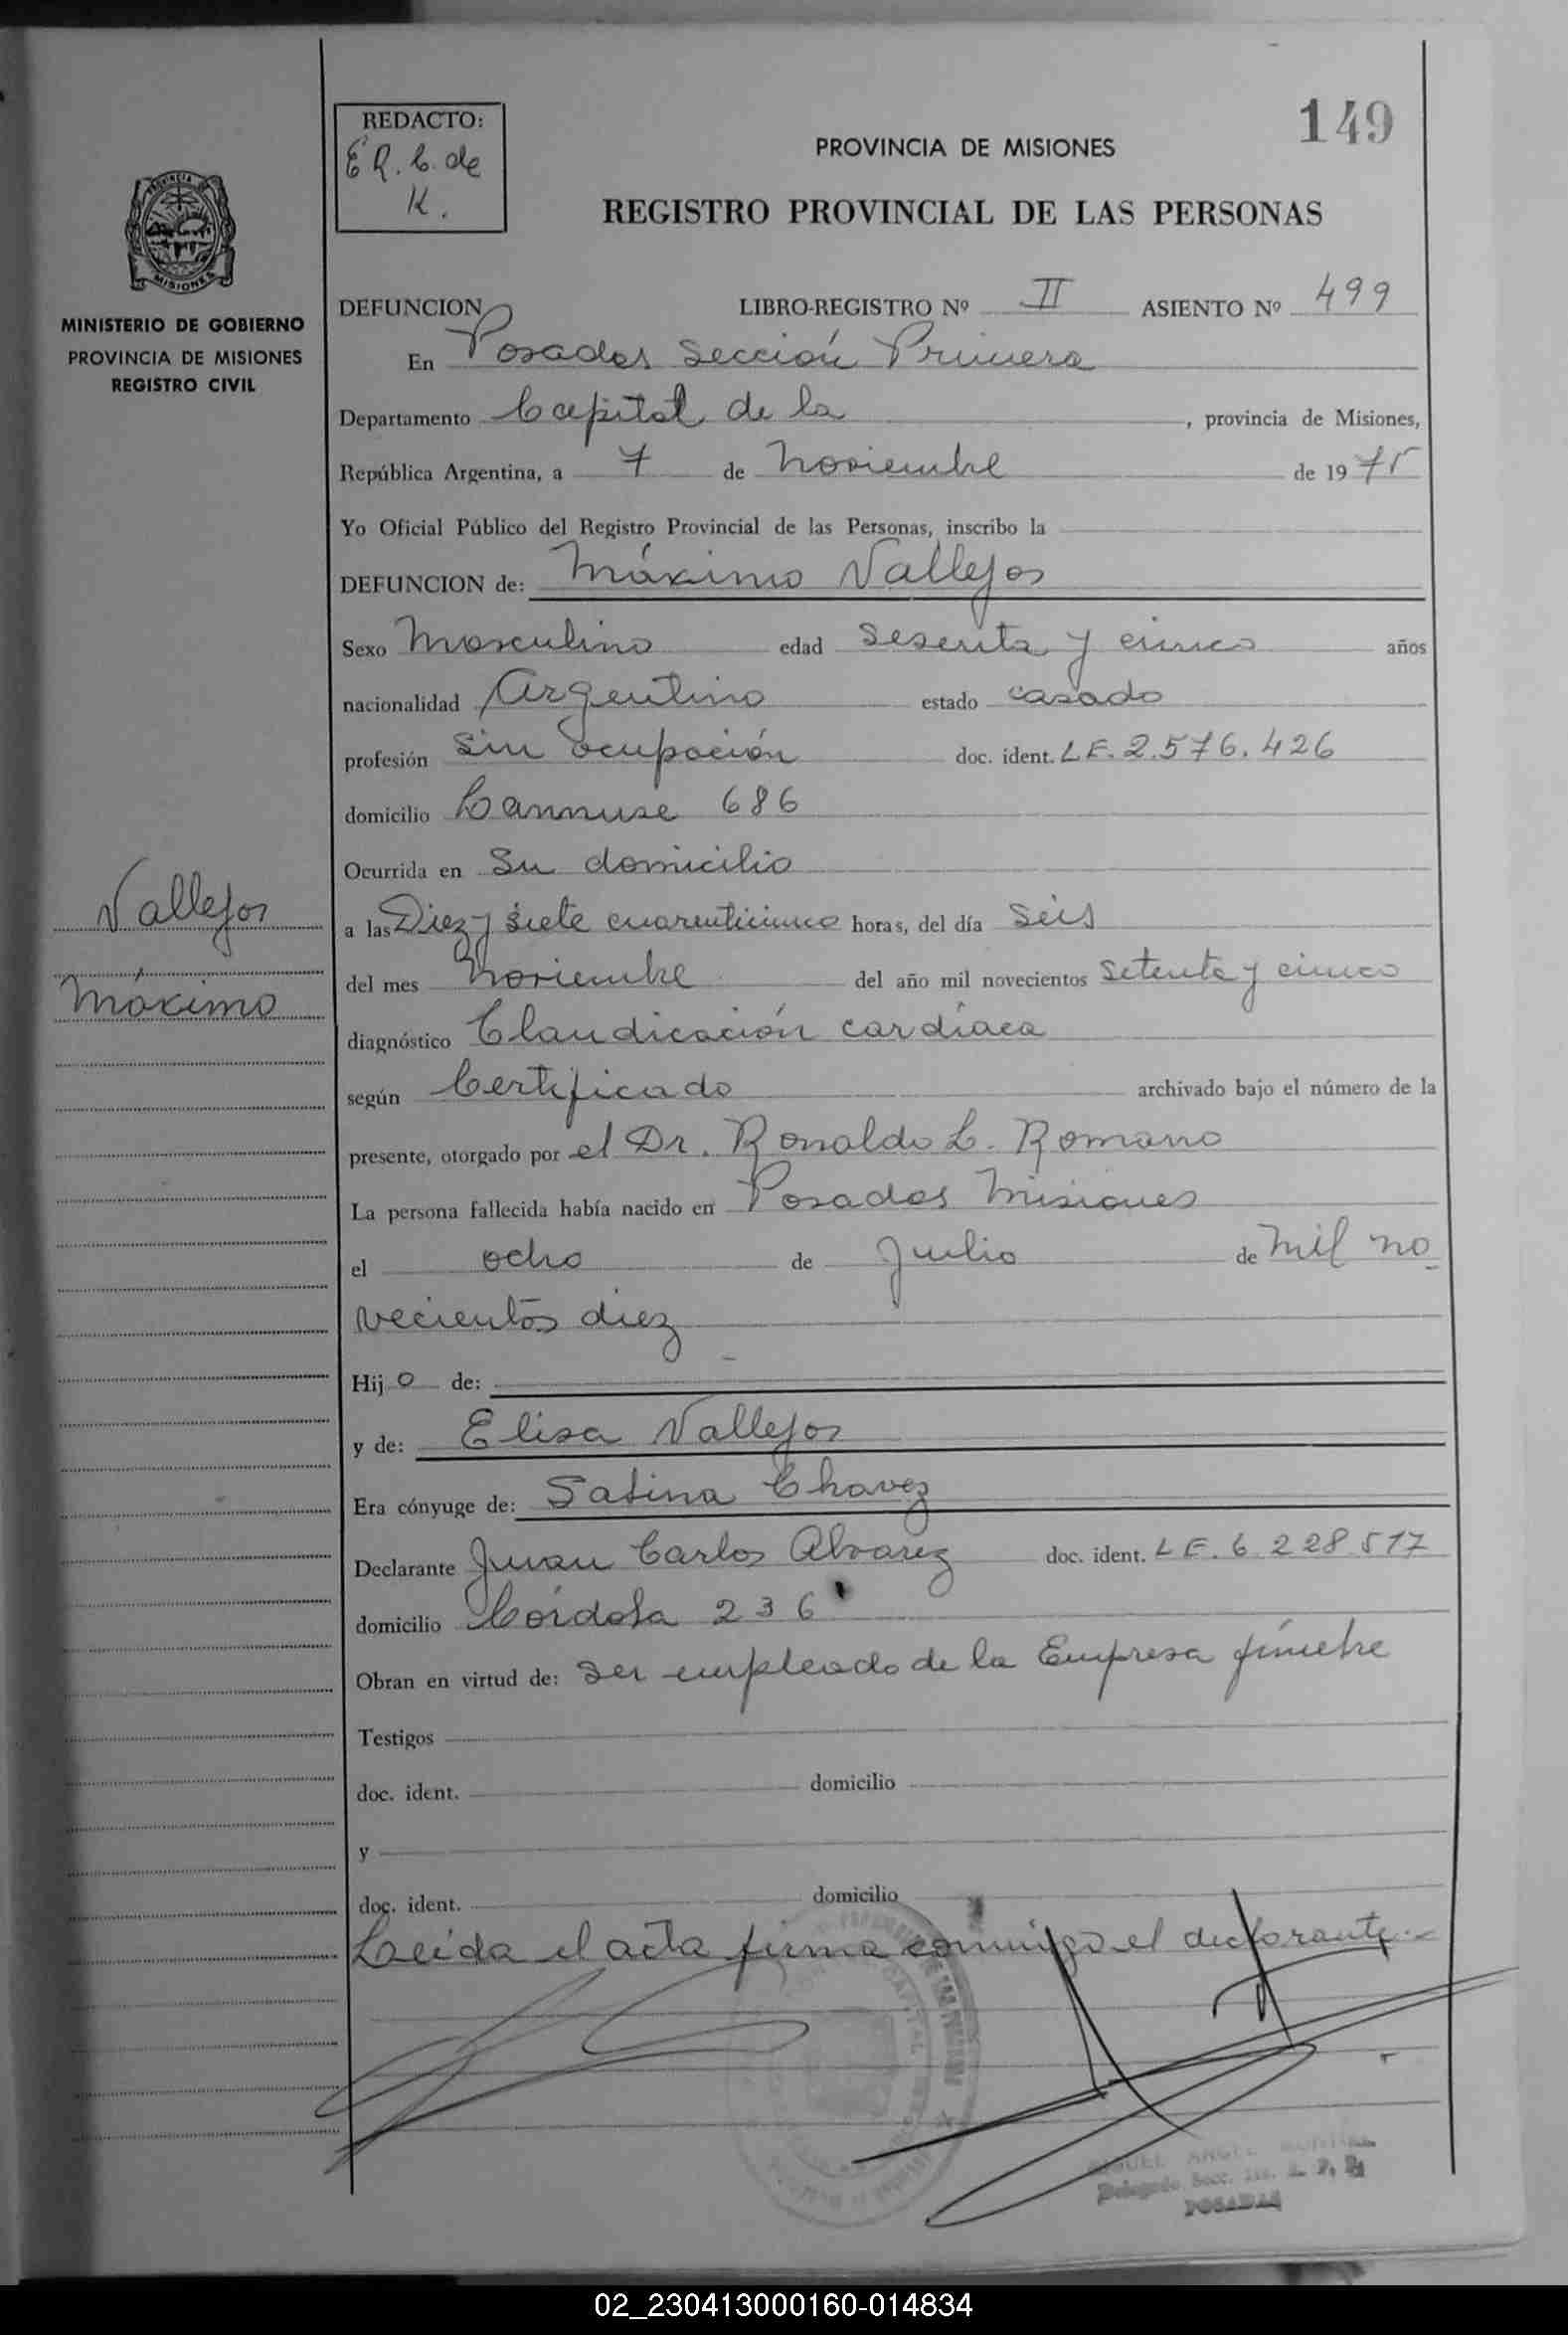 149
REDACTO:
E R. C. de
K.
PROVINCIA DE MISIONES
REGISTRO PROVINCIAL DE LAS PERSONAS
PROVINCIA DE
MISIONES
MINISTERIO DE GOBIERNO
PROVINCIA DE MISIONES
REGISTRO CIVIL
DEFUNCION LIBRO-REGISTRO Nº II ASIENTO Nº 499
En Posadas Sección Primera
Departamento Capital de la , provincia de Misiones,
República Argentina, a 7 de Noviembre de 1975
Yo Oficial Público del Registro Provincial de las Personas, inscribo la
DEFUNCION de: Máximo Vallejos
Sexo Masculino edad Sesenta y cinco años
nacionalidad Argentino estado casado
profesión Sin ocupación doc. ident. L E. 2.576.426
domicilio 686
Ocurrida en Su domicilio
Vallejos
Máximo
a las Diez y siete cuarenticinco horas, del día Seis
del mes Noviembre del año mil novecientos Setenta y cinco
diagnóstico Claudicación cardíaca
según Certificado archivado bajo el número de la
presente, otorgado por el Dr. Ronaldo L. Romano
La persona fallecida había nacido en Posadas Misiones
el ocho de Julio de Mil no
vecientos diez
Hijo de:
y de: Elisa Vallejos
Era cónyuge de: Sabina Chavez
Declarante Juan Carlos Alvarez doc. ident. L E. 6 228 517
domicilio Córdoba 236
Obran en virtud de: Ser empleado de la Empresa fúnebre
Testigos
doc. ident. domicilio
y
doc. ident. domicilio
Leída el acta firma conmigo el declarante.-
MIGUEL ANGEL
Delegado Secc. 1ra. R. P. P.
POSADAS
02_230413000160-014834